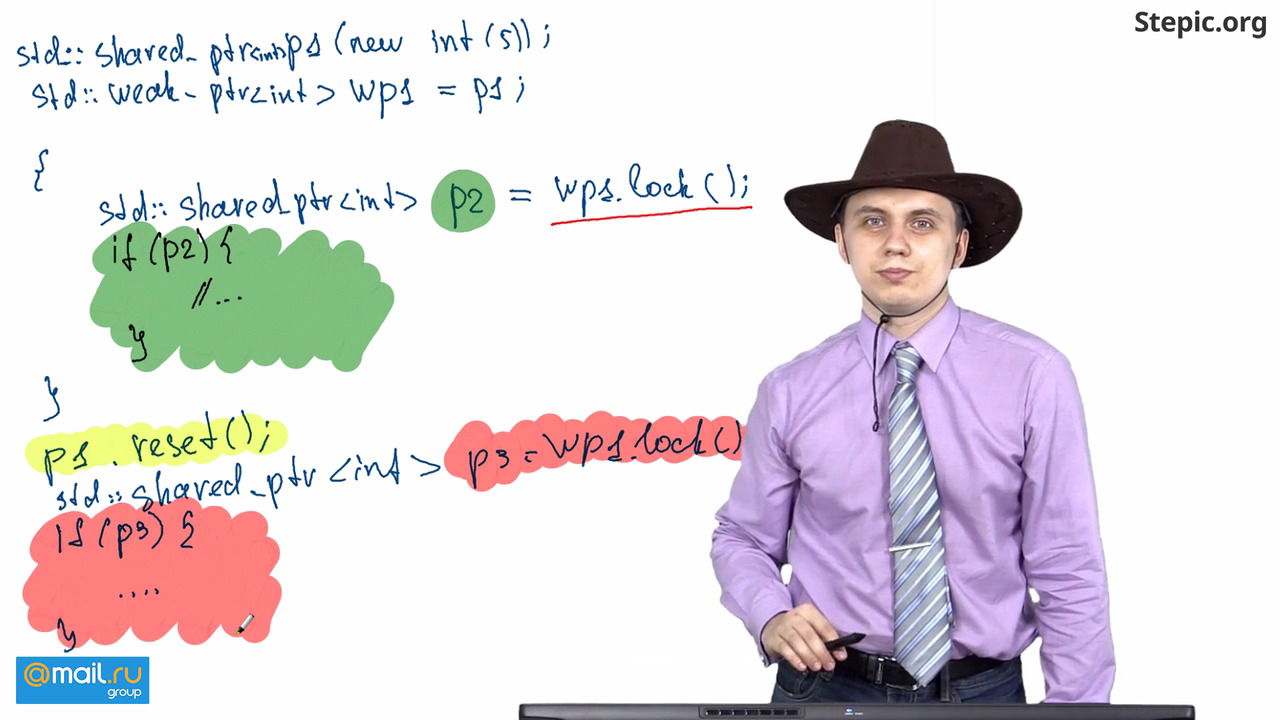 Stepic.org
std::shared_ptr<int>p1(new int(5));
std::weak_ptr<int> wp1 = p1;
{
std::shared_ptr<int> p2 = wp1.lock();
if (p2) {
//...
}
}
p1.reset();
std::shared_ptr<int> p3=wp1.lock()
if (p3) {
....
}
@mail.ru
group